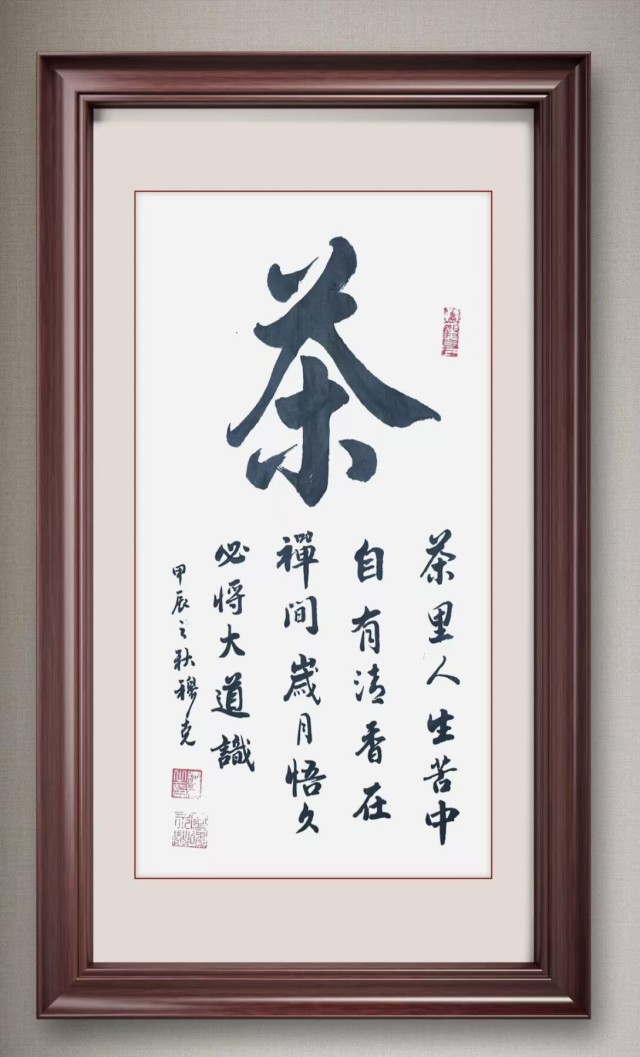 茶
茶里人生苦中
自有清香在
禪間歲月悟久
必将大道識
甲辰之秋穆克